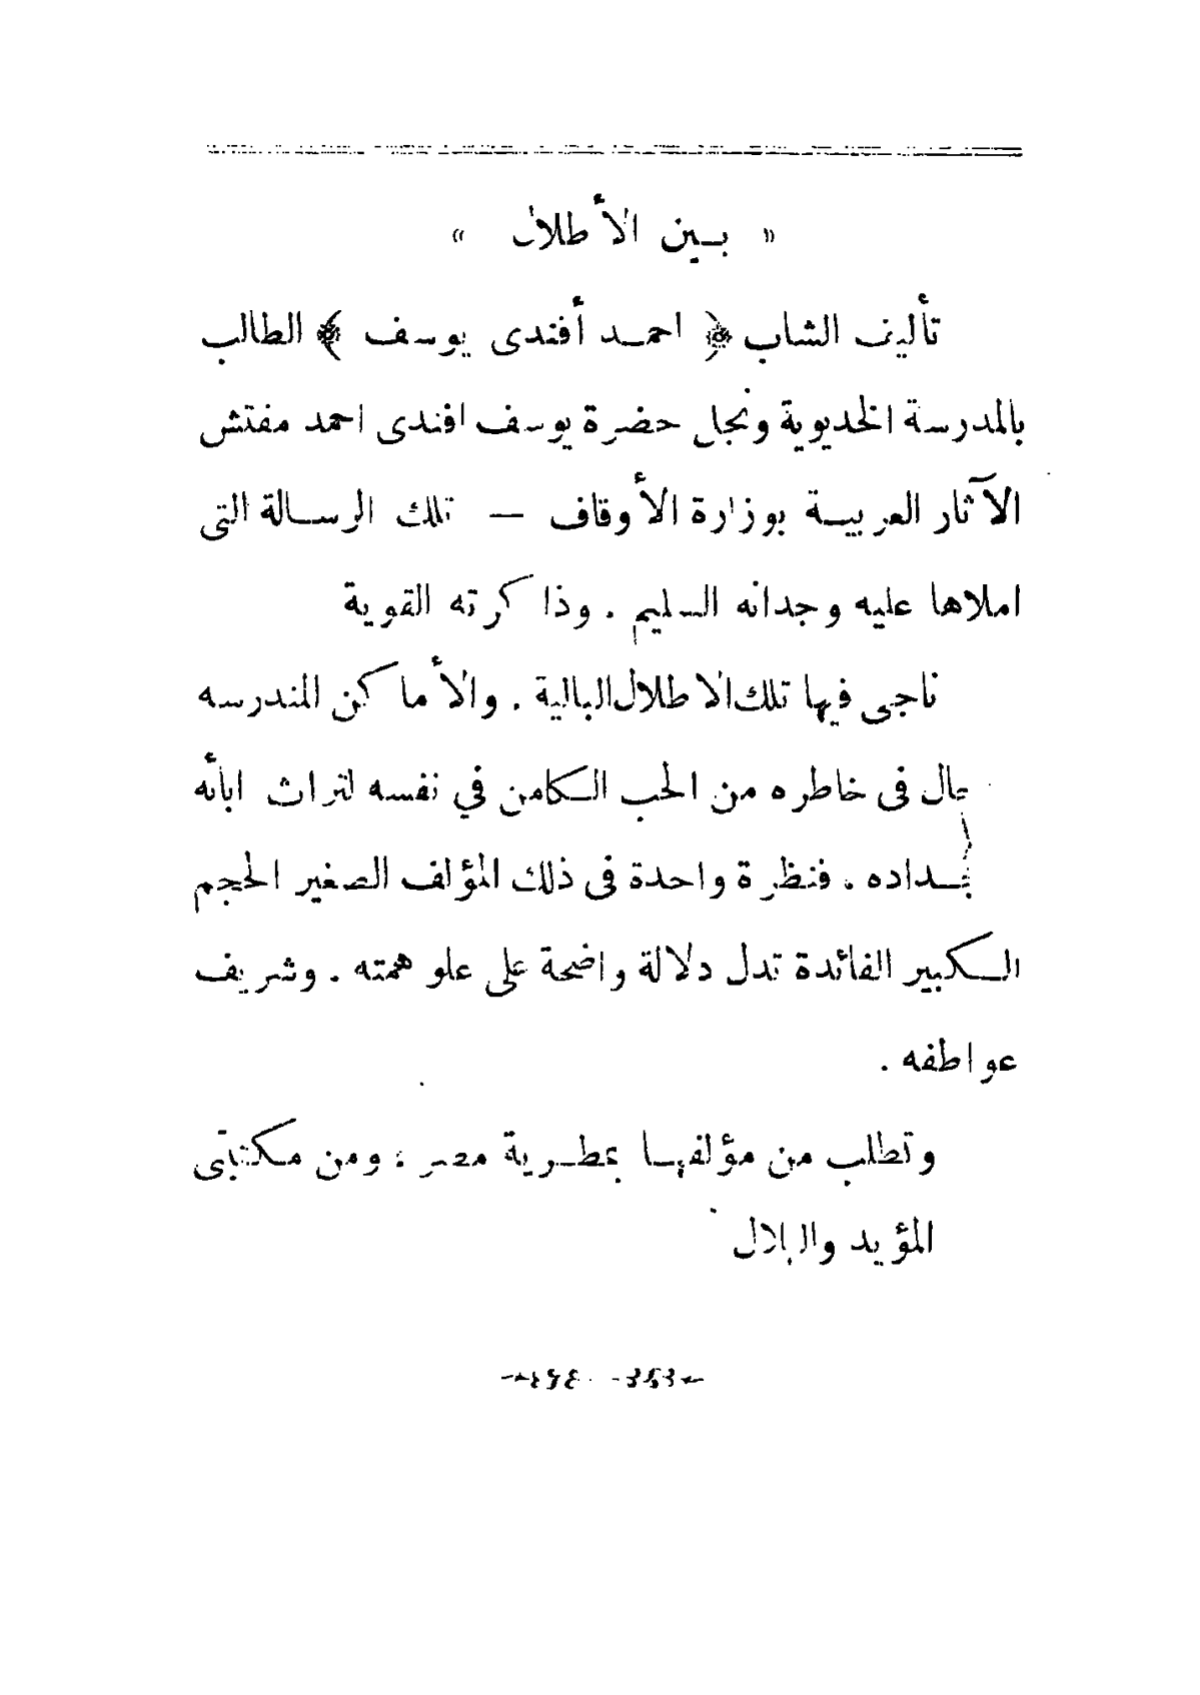 « بين الأطلال »
تأليف الشاب ﴿ احمد أفندى يوسف ﴾ الطالب
بالمدرسة الخديوية ونجل حضرة يوسف افندى احمد مفتش
الآثار العربية بوزارة الأوقاف — تلك الرسالة التى
املاها عليه وجدانه السليم . وذاكرته القوية
ناجى فيها تلك الاطلال البالية . والأماكن المندرسه
جال فى خاطره من الحب الكامن في نفسه لتراث ابأئه
. فنظرة واحدة فى ذلك المؤلف الصغير الحجم
الكبير الفائدة تدل دلالة واضحة على علو همته . وشريف
عواطفه .
وتطلب من مؤلفها بمطرية مصر ، ومن مكتبتى
المؤيد والهلال